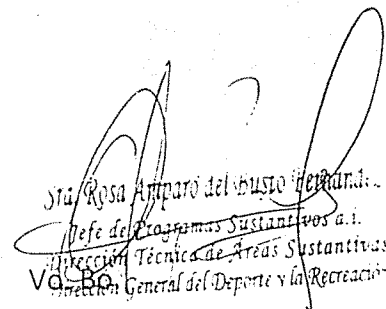 Sra. Rosa Amparo del Busto Fernánd
Jefe de Programas Sustantivos a.i.
Dirección Técnica de Áreas Sustantivas
Vo. Bo. Dirección General del Deporte y la Recreación